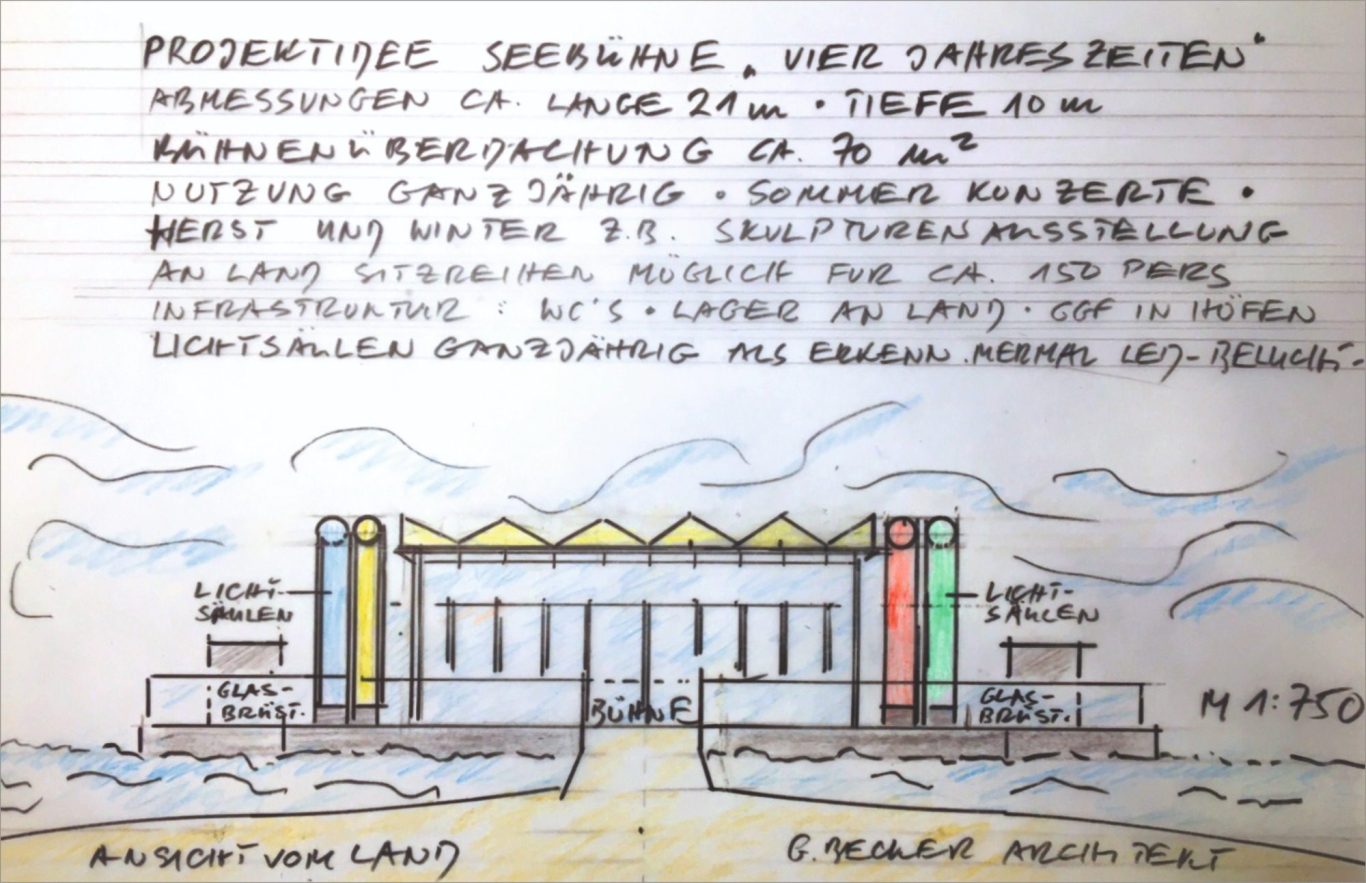 PROJEKTIDEE SEEBÜHNE „VIER JAHRESZEITEN"
ABMESSUNGEN CA. LÄNGE 21 m · TIEFE 10 m
BÜHNENÜBERDACHUNG CA. 70 m²
NUTZUNG GANZJÄHRIG · SOMMER KONZERTE ·
HERBST UND WINTER Z.B. SKULPTURENAUSSTELLUNG
AN LAND SITZREIHEN MÖGLICH FÜR CA. 150 PERS
INFRASTRUKTUR : WC'S · LAGER AN LAND · GGF IN HÖFEN
LICHTSÄULEN GANZJÄHRIG ALS ERKENN.MERMAL LED-BELICHT.
LICHT-
SÄULEN
LICHT-
SÄULEN
GLAS-
BRÜST.
BÜHNE
GLAS-
BRÜST.
M 1:750
ANSICHT VOM LAND
G. BECKER ARCHITEKT